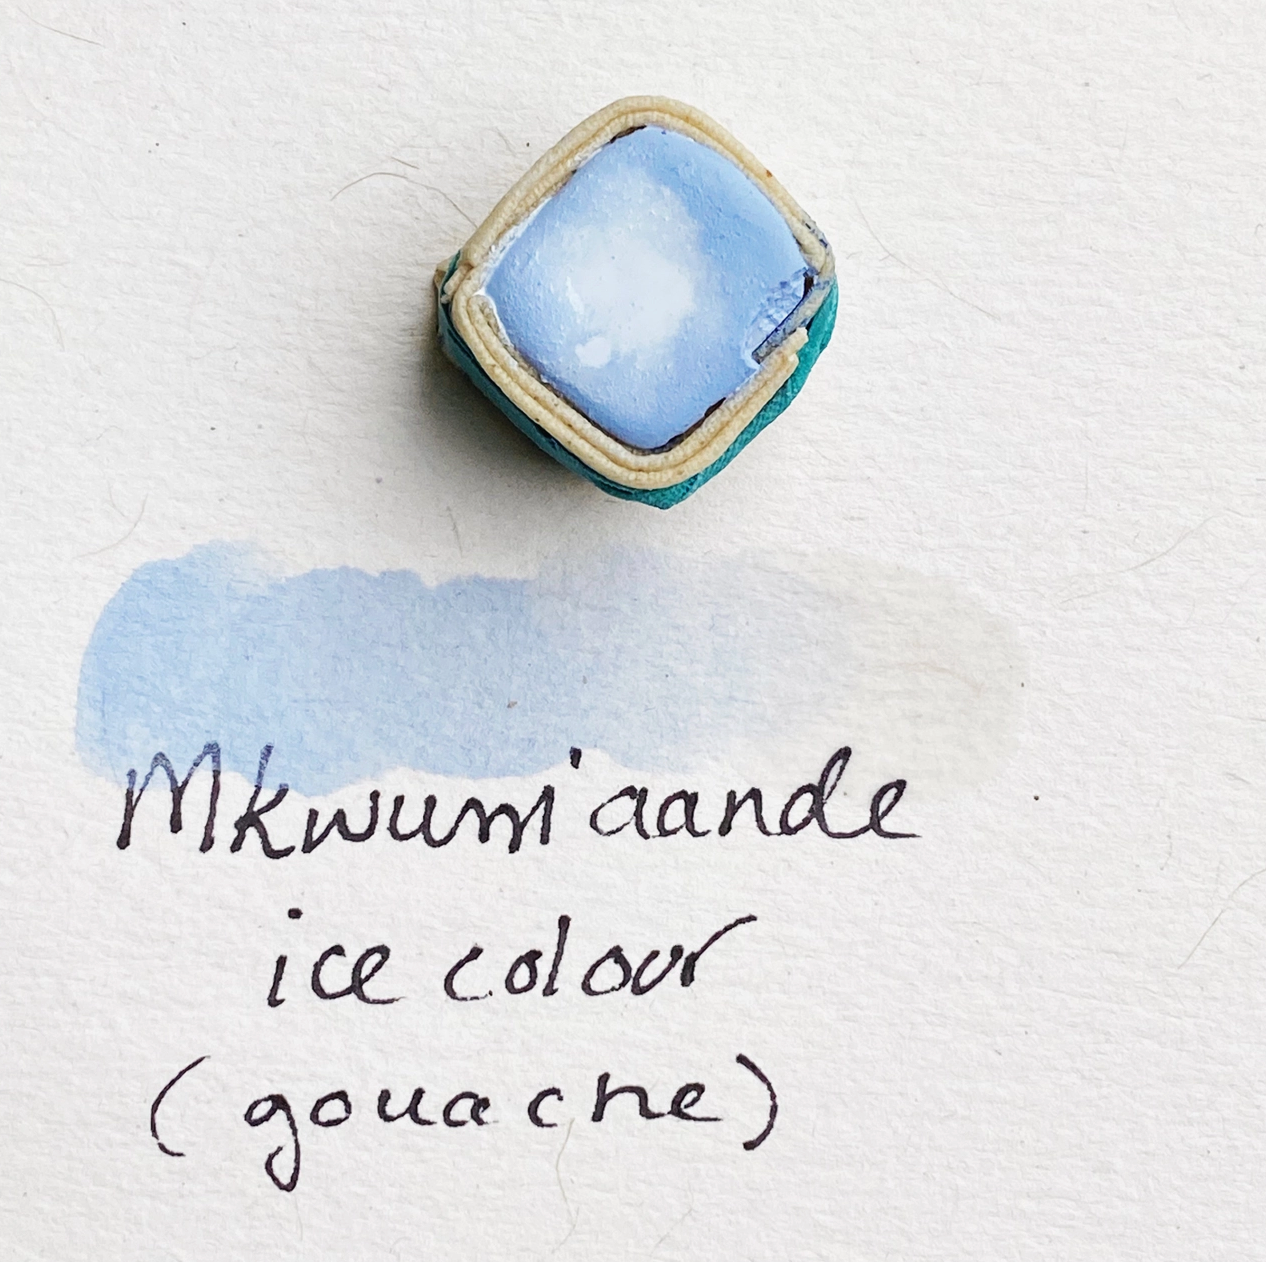 Mkwumi aande
ice colour
(gouache)